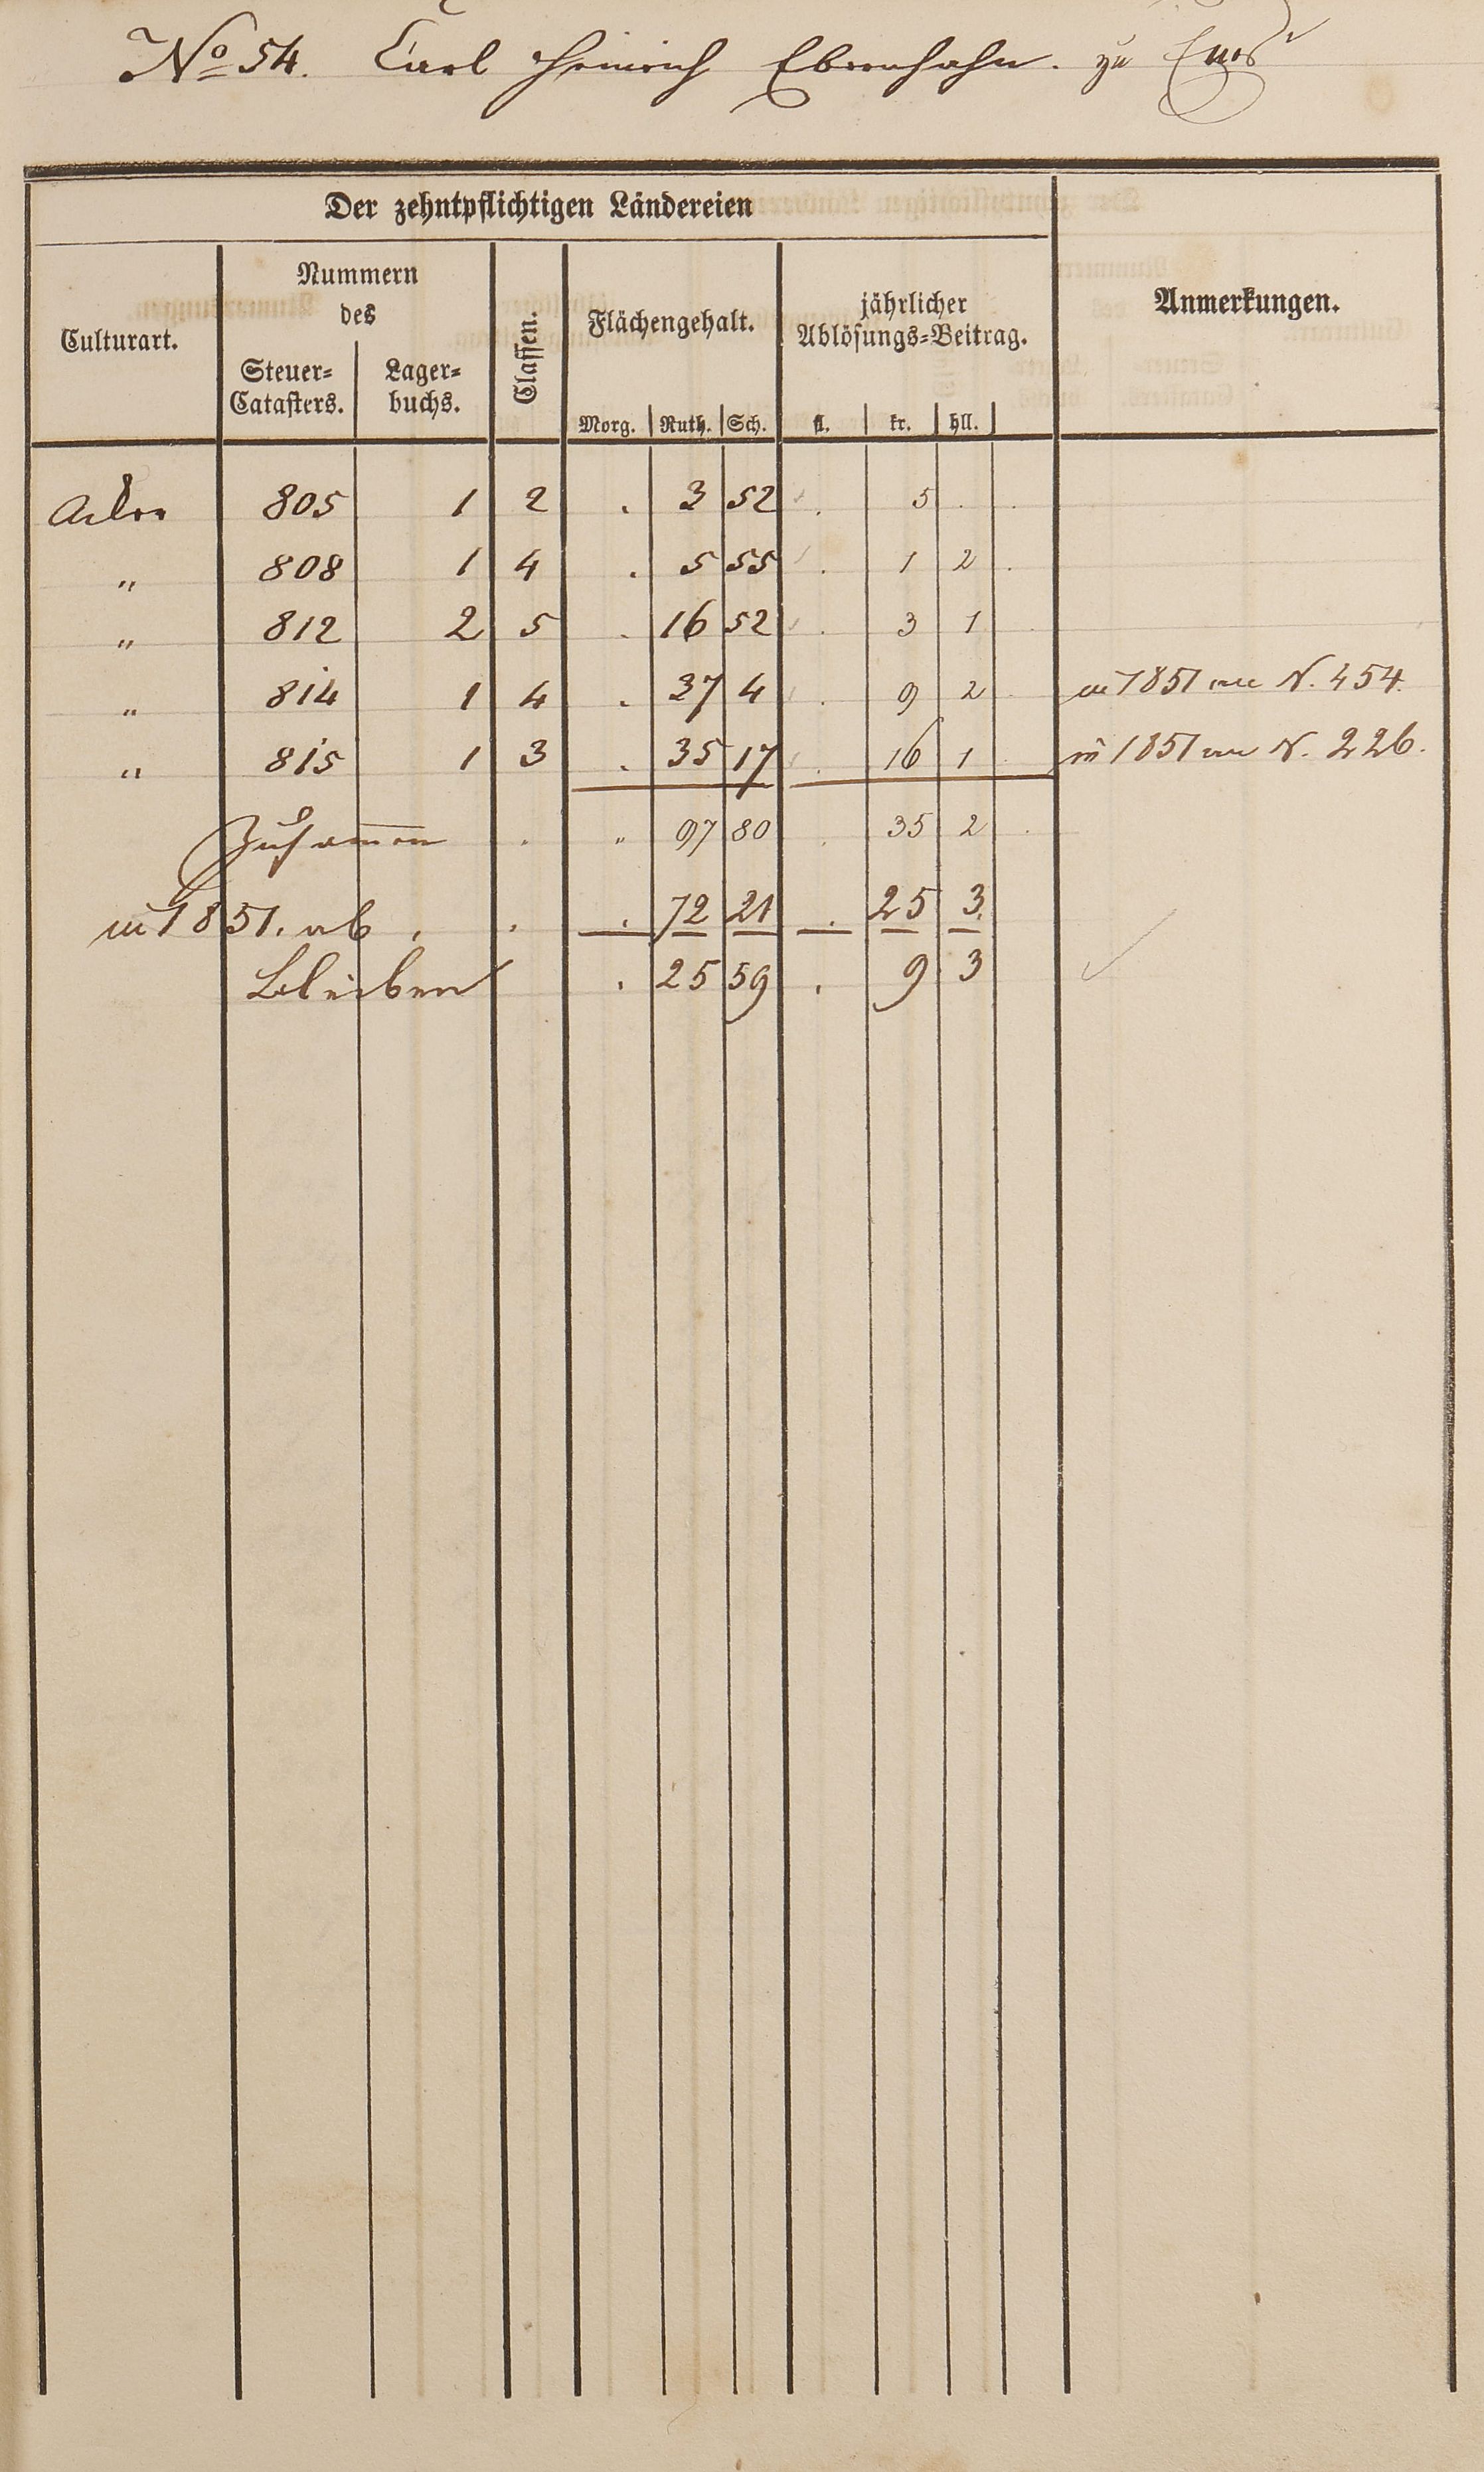 No 54. Carl Heinrich Ebernhahn. zu Ems
Der zehntpflichtigen Ländereien
Culturart.
Nummern
des
Steuer-
Catasters.
Lager-
buchs.
Classen.
Flächengehalt.
Morg. Ruth. Sch.
jährlicher
Ablösungs-Beitrag.
fl. kr. hll.
Anmerkungen.
Acker 805 1 2 . 3 52 . 5 .
„ 808 1 4 . 5 55 . 1 2 .
„ 812 2 5 . 16 52 . 3 1
„ 814 1 4 . 37 4 . 9 2 in 1851 an N. 454.
„ 815 1 3 . 35 17 . 16 1 in 1851 an N. 226.
Zusam̅en . „ 97 80 . 35 2 .
in 1851. ab . . . 72 21 . 25 3.
bleiben . 25 59 . 9 3